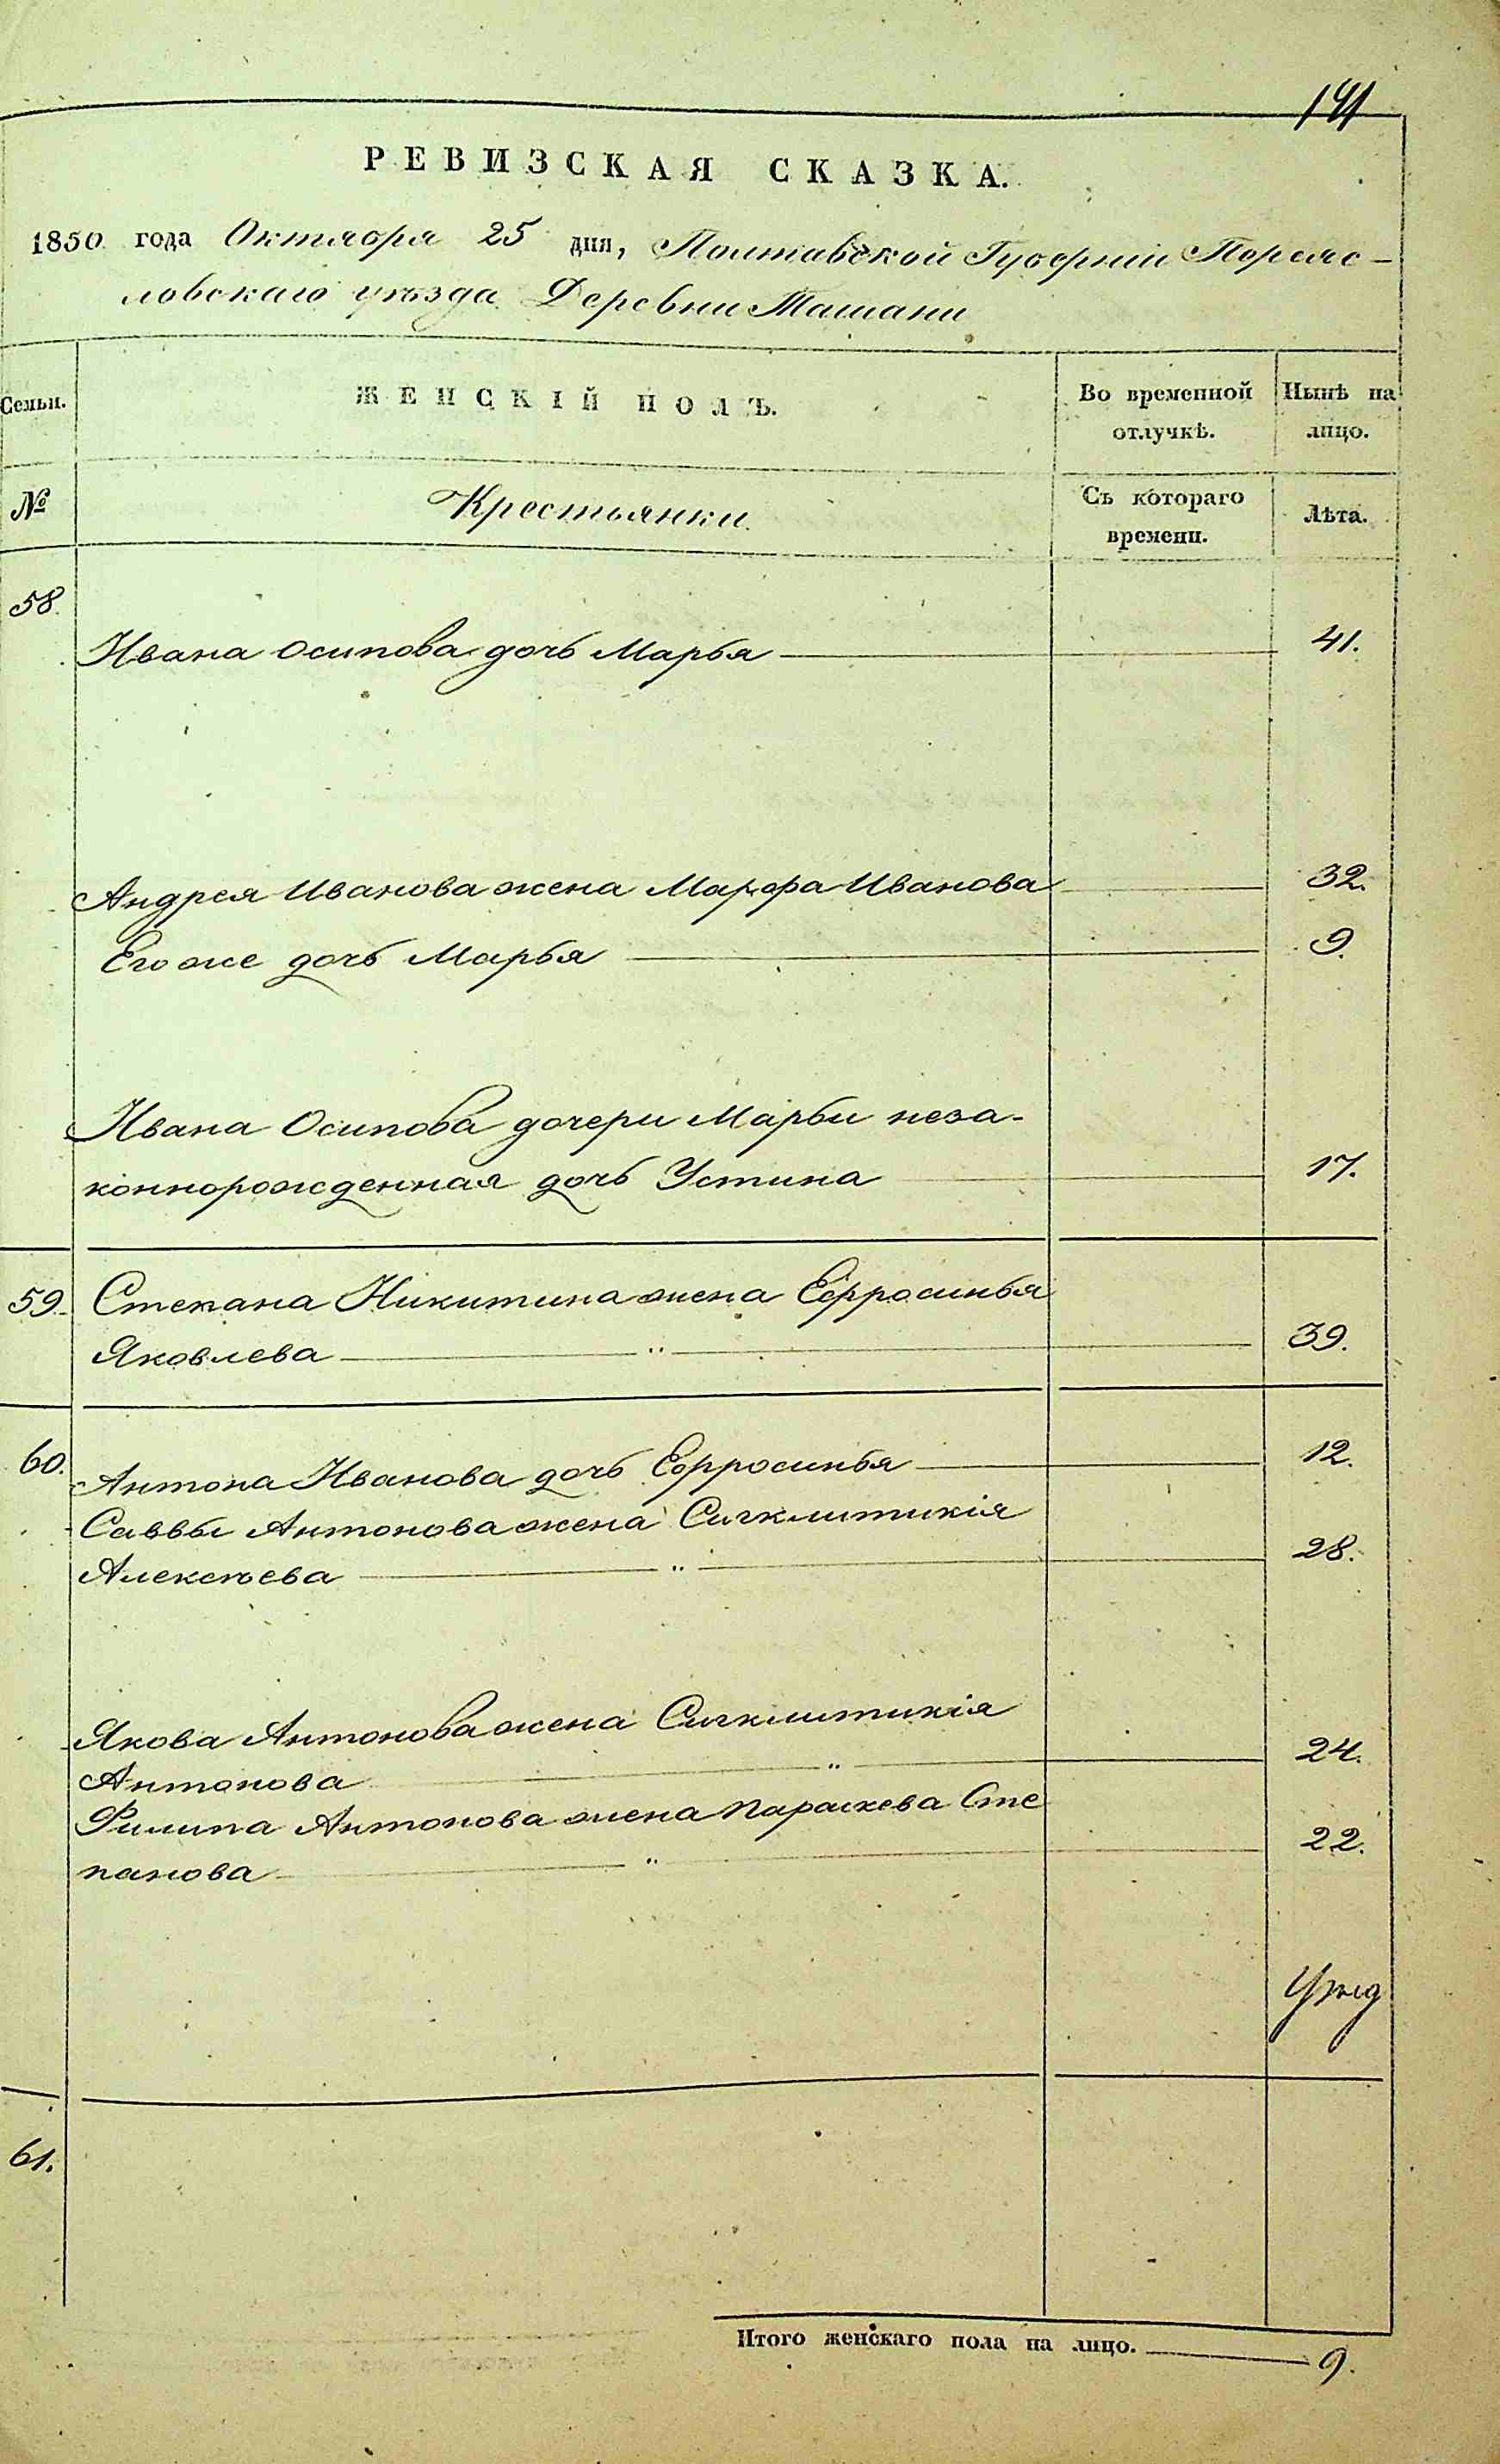 141
РЕВИЗСКАЯ СКАЗКА.
1850 года Октября 25 дня, Полтавской Губерніи Пореяс-
ловскаго уѣзда Деревни Ташани
Семьи. ЖЕНСКІЙ ПОЛЪ. Во временной отлучкѣ. Нынѣ на лицо.
№ Крестьянки. Съ котораго времени. Лѣта.
58.
Ивана Осипова дочь Марья 41.
Андрея Иванова жена Марфа Иванова 32.
Его же дочь Марья 9.
Ивана Осипова дочери Марьи неза-
коннорожденная дочь Устина 17.
59. Степана Никитина жена Ефросинья
Яковлева " 39.
60. Антона Иванова дочь Ефросинья 12.
Саввы Антонова жена Сигклитикія
Алексѣева " 28.
Якова Антонова жена Сигклитикія
Антонова " 24.
Филипа Антонова жена Параскева Сте
панова " 22.
61.
Итого женскаго пола на лицо. 9.